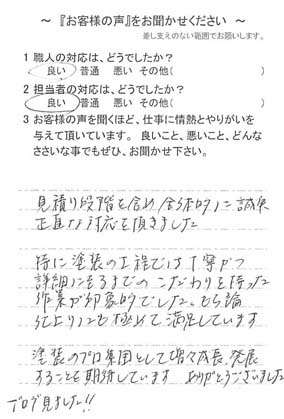 ～『お客様の声』をお聞かせください～
差し支えのない範囲でお願いします。
1 職人の対応は、どうでしたか？
良い 普通 悪い その他( )
2 担当者の対応は、どうでしたか？
良い 普通 悪い その他( )
3 お客様の声を聞くほど、仕事に情熱とやりがいを
与えて頂いています。 良いこと、悪いこと、どんな
ささいな事でもぜひ、お聞かせ下さい。
見積り段階を含め全体的に誠実
正直な対応を頂きました
特に塗装の工程では丁寧かつ
詳細にそるまでのこだわりを持った
作業が印象的でした。もち論
仕上りにも極めて満足しています
塗装のプロ集団として増々成長、発展
することを期待しています ありがとうございました
ブログ見ました!!